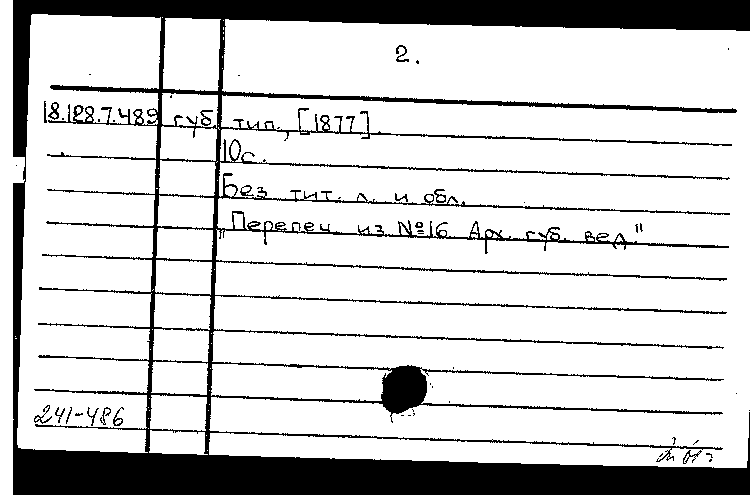 2.
18.128.7.489 губ. тип., [1877].
10с.
Без тит. л. и обл.
„Перепеч. из №16 Арх. губ. вед."
241-486